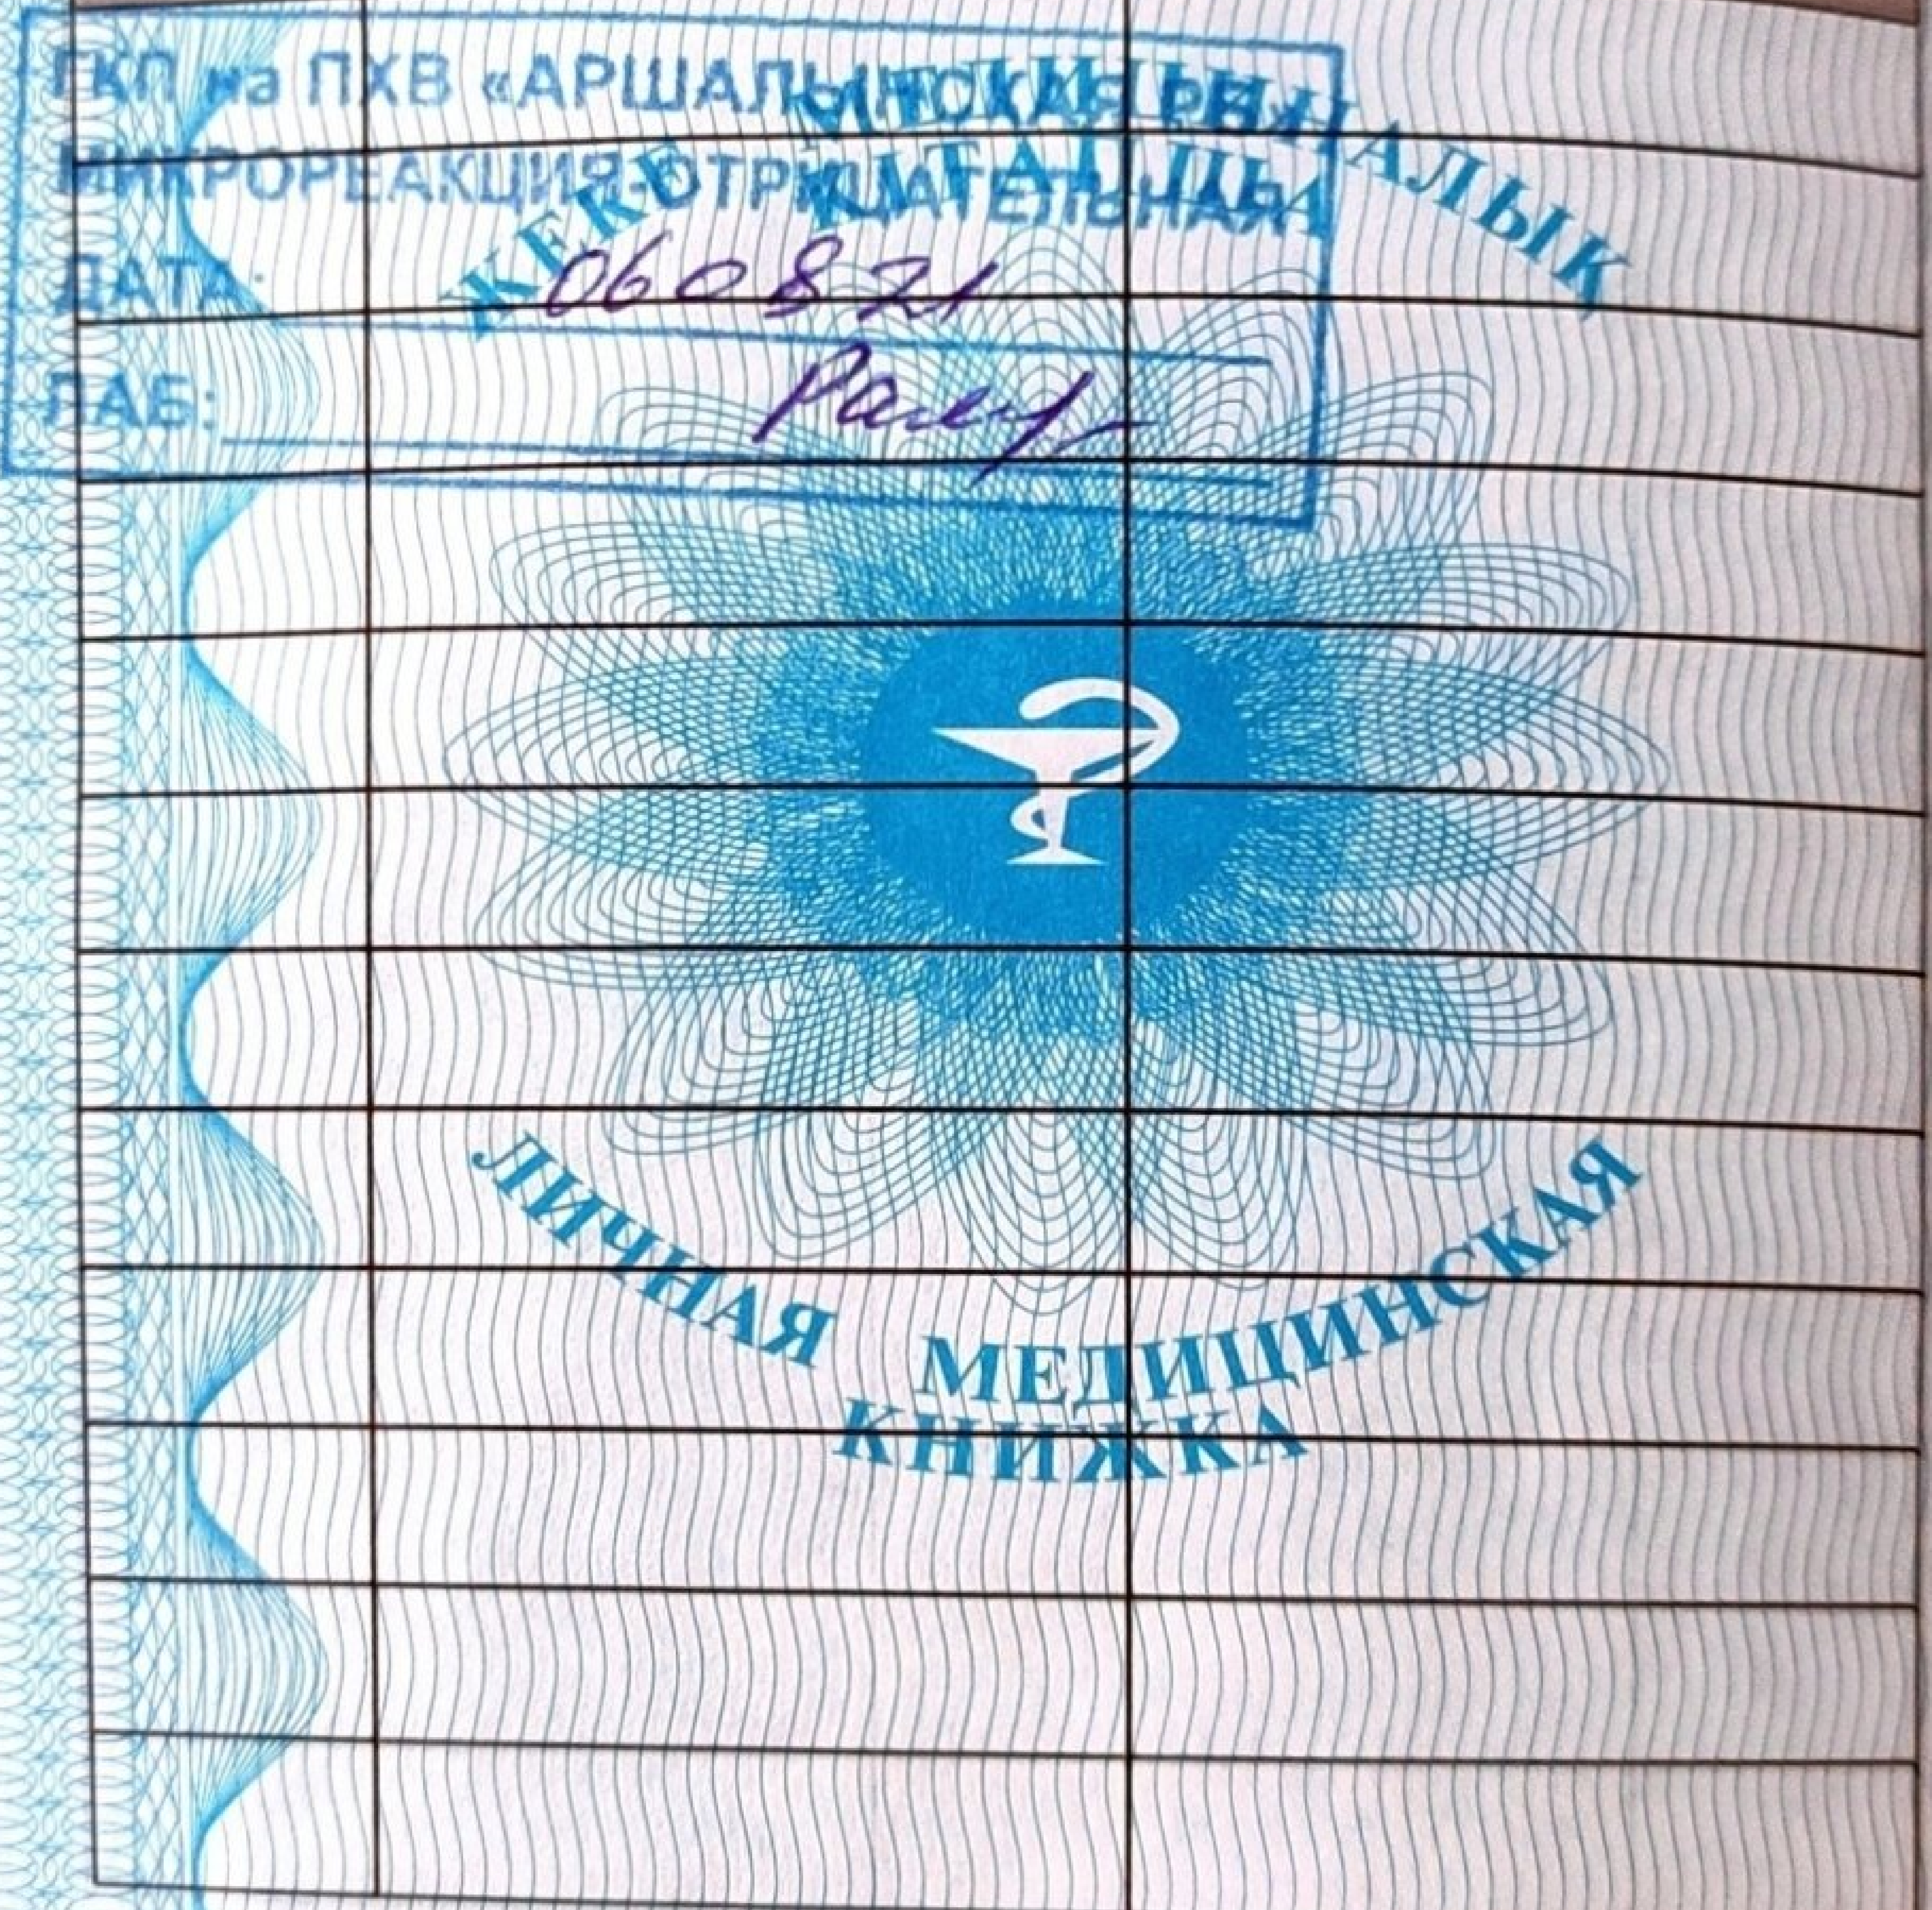 ГКП на ПХВ «АРШАЛЫНСКАЯ РБ»
МИКРОРЕАКЦИЯ-ОТРИЦАТЕЛЬНАЯ
ДАТА: 060821
ЛАБ:
ЖЕКЕ МЕДИЦИНАЛЫК
КІТАПША
ЛИЧНАЯ МЕДИЦИНСКАЯ
КНИЖКА